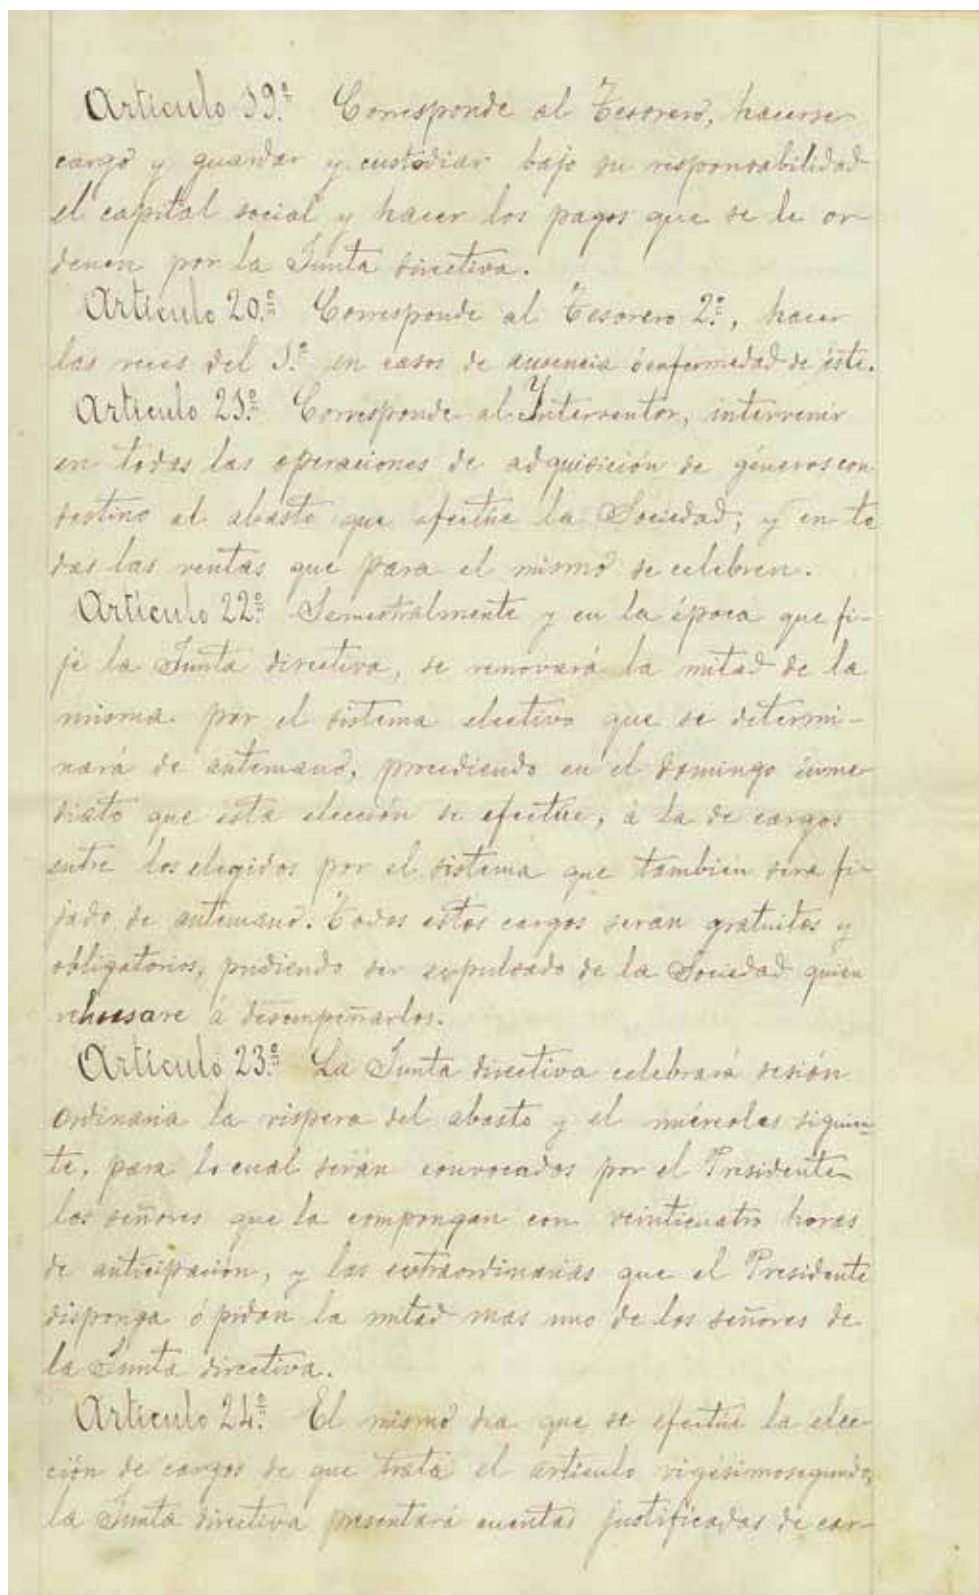 Artículo 19.º Corresponde al Tesorero, hacerse
cargo y guardar y custodiar bajo su responsabilidad
el capital social y hacer los pagos que se le or-
denen por la Junta directiva.
Artículo 20.º Corresponde al Tesorero 2.º, hacer
las veces del 1.º en casos de ausencia ó enfermedad de éste.
Artículo 21.º Corresponde al Interventor, intervenir
en todas las operaciones de adquisición de géneros con
destino al abasto que efectúe la Sociedad; y en to
das las ventas que para el mismo se celebren.
Artículo 22.º Semestralmente y en la época que fi-
je la Junta directiva, se renovará la mitad de la
misma por el sistema electivo que se determi-
nará de antemano, procediendo en el domingo inme
diato que ésta elección se efectúe, á la de cargos
entre los elegidos por el sistema que también será fi-
jado de antemano. Todos estos cargos serán gratuitos y
obligatorios, pudiendo ser expulsado de la Sociedad quien
rehusare á desempeñarlos.
Artículo 23.º La Junta directiva celebrará sesión
ordinaria la víspera del abasto y el miércoles siguien-
te, para lo cual serán convocados por el Presidente
los señores que la compongan con veinticuatro horas
de anticipación, y las extraordinarias que el Presidente
disponga ó pidan la mitad mas uno de los señores de
la Junta directiva.
Artículo 24.º El mismo dia que se efectúe la elec-
ción de cargos de que trata el artículo vigésimosegundo,
la Junta directiva presentará cuentas justificadas de car-